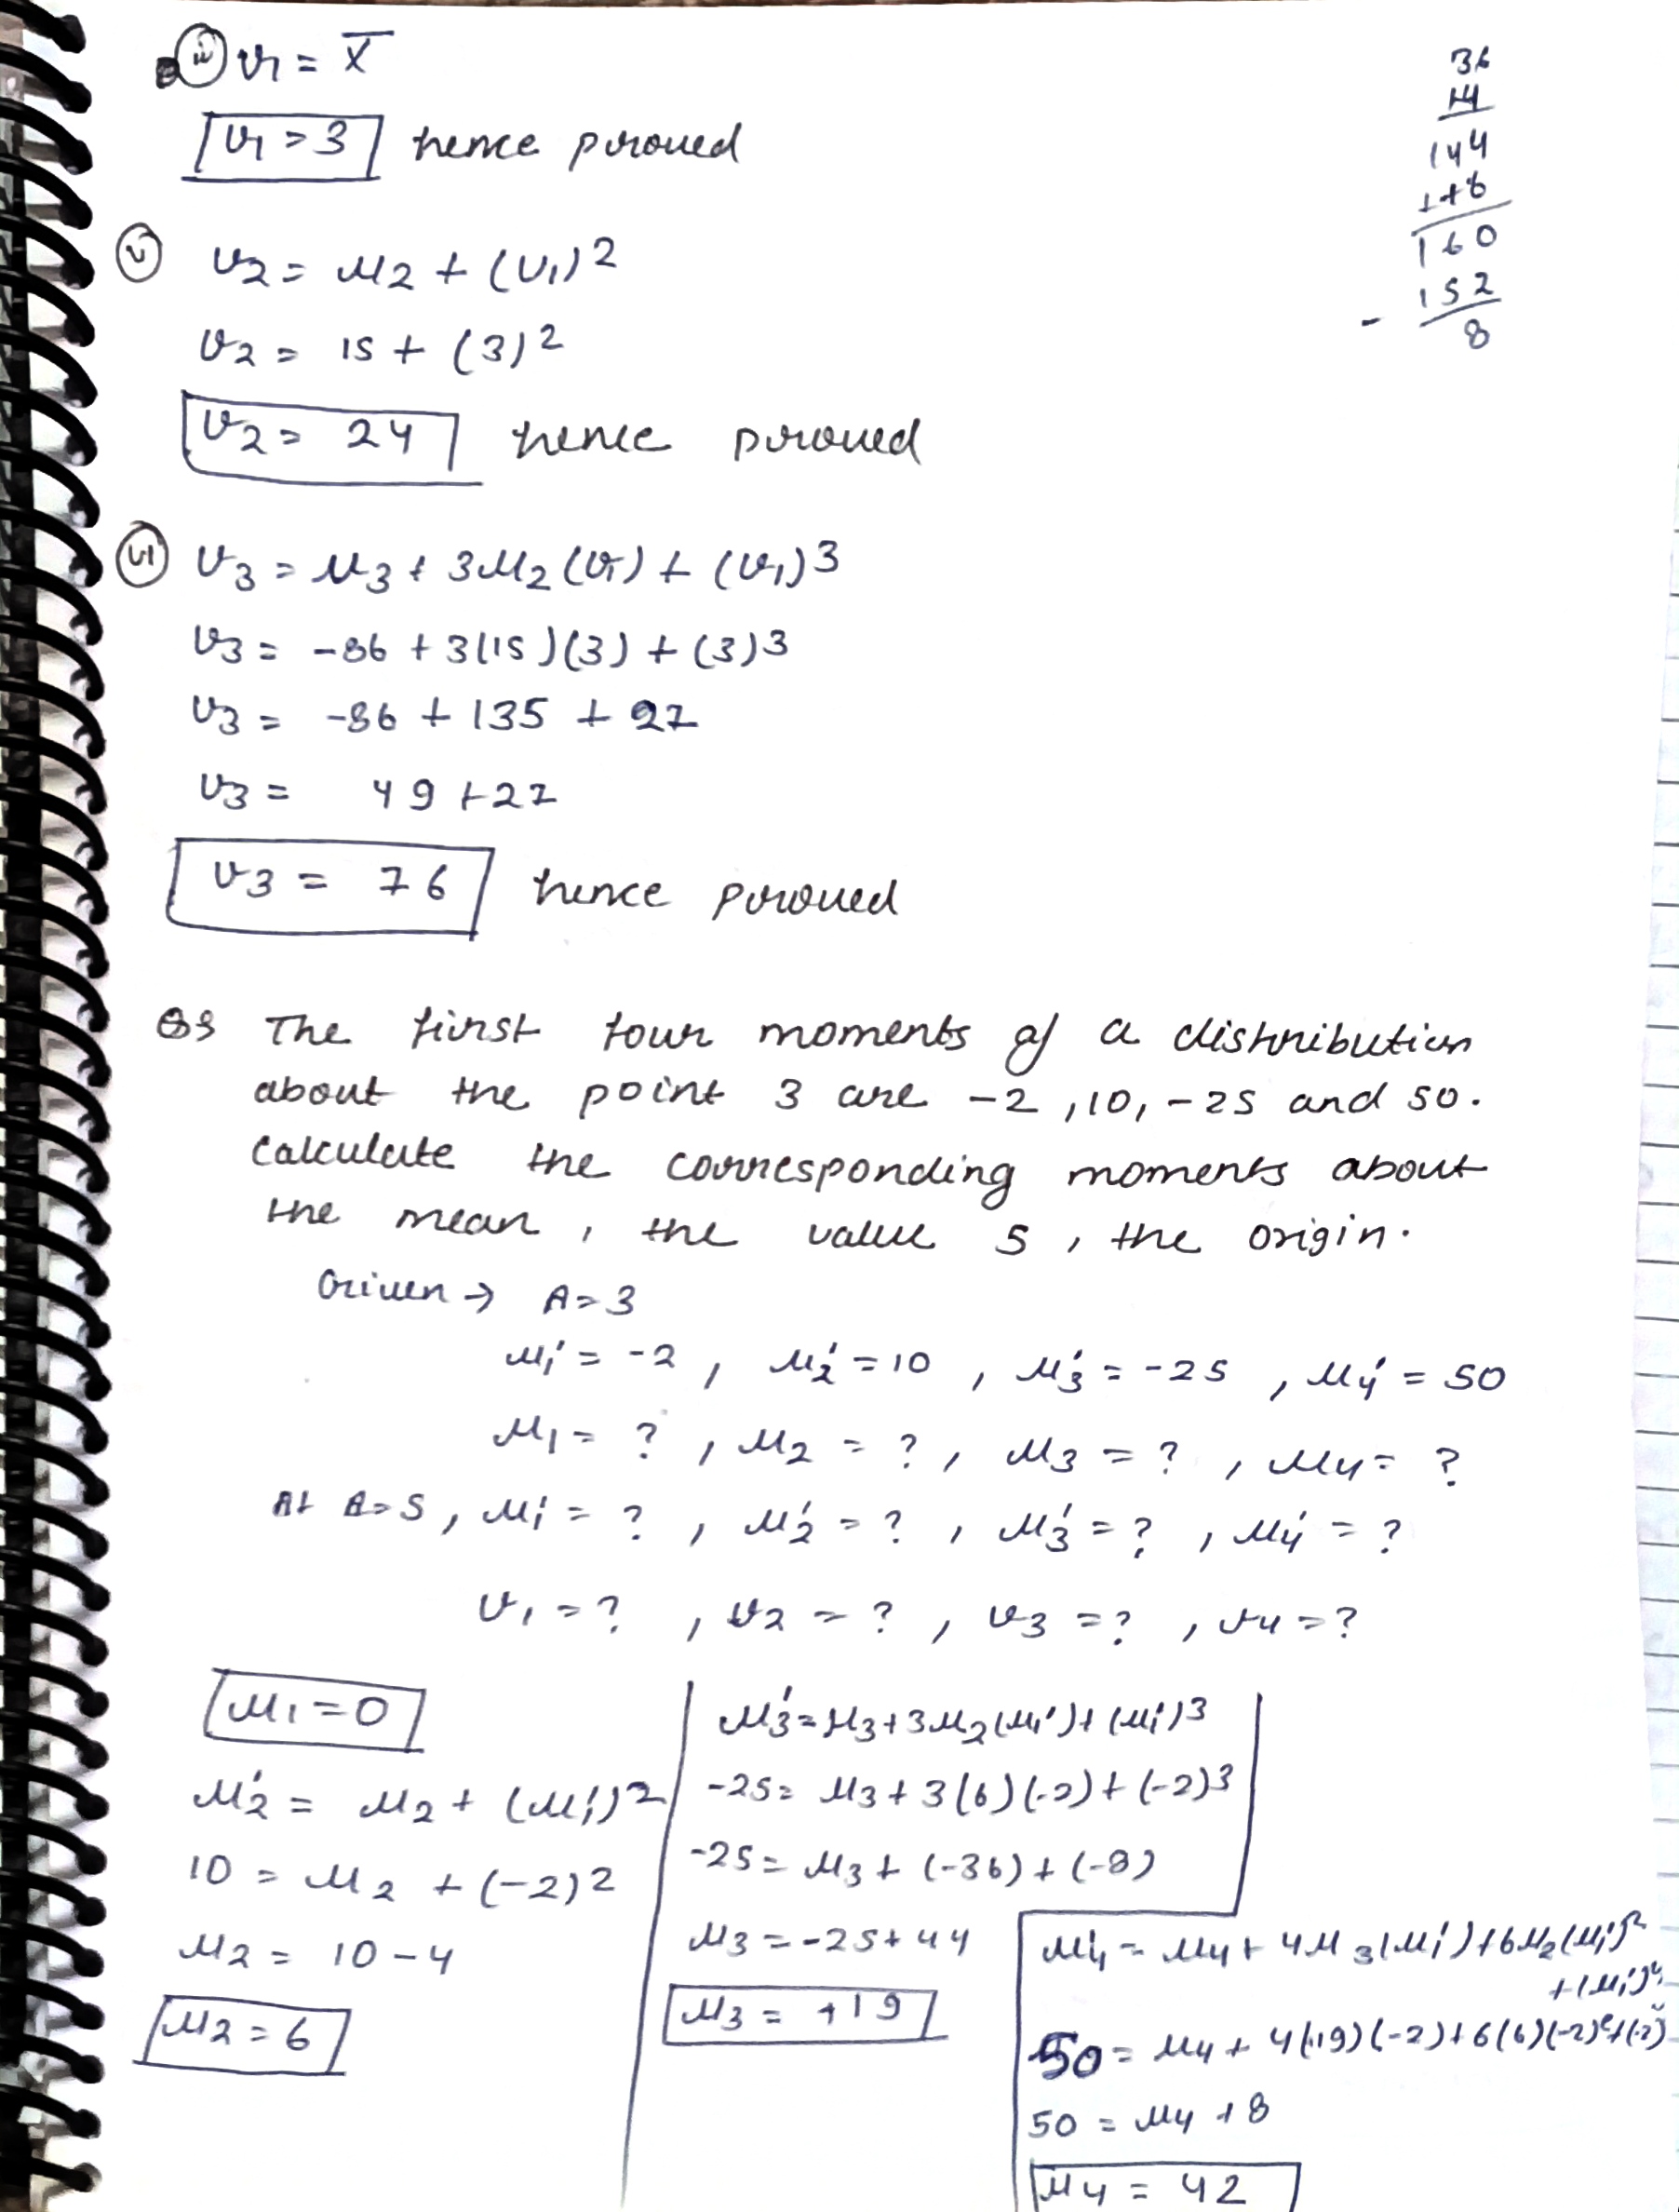 iv v₁ = X̄
v₁ = 3 hence proved
36
14
144
+16
160
- 152
8
v v₂ = μ₂ + (v₁)²
v₂ = 15 + (3)²
v₂ = 24 hence proved
vi v₃ = μ₃ + 3μ₂(v₁) + (v₁)³
v₃ = -86 + 3(15)(3) + (3)³
v₃ = -86 + 135 + 27
v₃ = 49 + 27
v₃ = 76 hence proved
Q3 The first four moments of a distribution
about the point 3 are -2, 10, -25 and 50.
Calculate the corresponding moments about
the mean, the value 5, the origin.
Given → A = 3
μ₁' = -2, μ₂' = 10, μ₃' = -25, μ₄' = 50
μ₁ = ?, μ₂ = ?, μ₃ = ?, μ₄ = ?
At A = 5, μ₁' = ?, μ₂' = ?, μ₃' = ?, μ₄' = ?
v₁ = ?, v₂ = ?, v₃ = ?, v₄ = ?
μ₁ = 0
μ₂' = μ₂ + (μ₁')²
10 = μ₂ + (-2)²
μ₂ = 10 - 4
μ₂ = 6
μ₃' = μ₃ + 3μ₂(μ₁') + (μ₁')³
-25 = μ₃ + 3(6)(-2) + (-2)³
-25 = μ₃ + (-36) + (-8)
μ₃ = -25 + 44
μ₃ = +19
μ₄' = μ₄ + 4μ₃(μ₁') + 6μ₂(μ₁')²
+ (μ₁')⁴
50 = μ₄ + 4(19)(-2) + 6(6)(-2)² + (-2)
50 = μ₄ + 8
μ₄ = 42